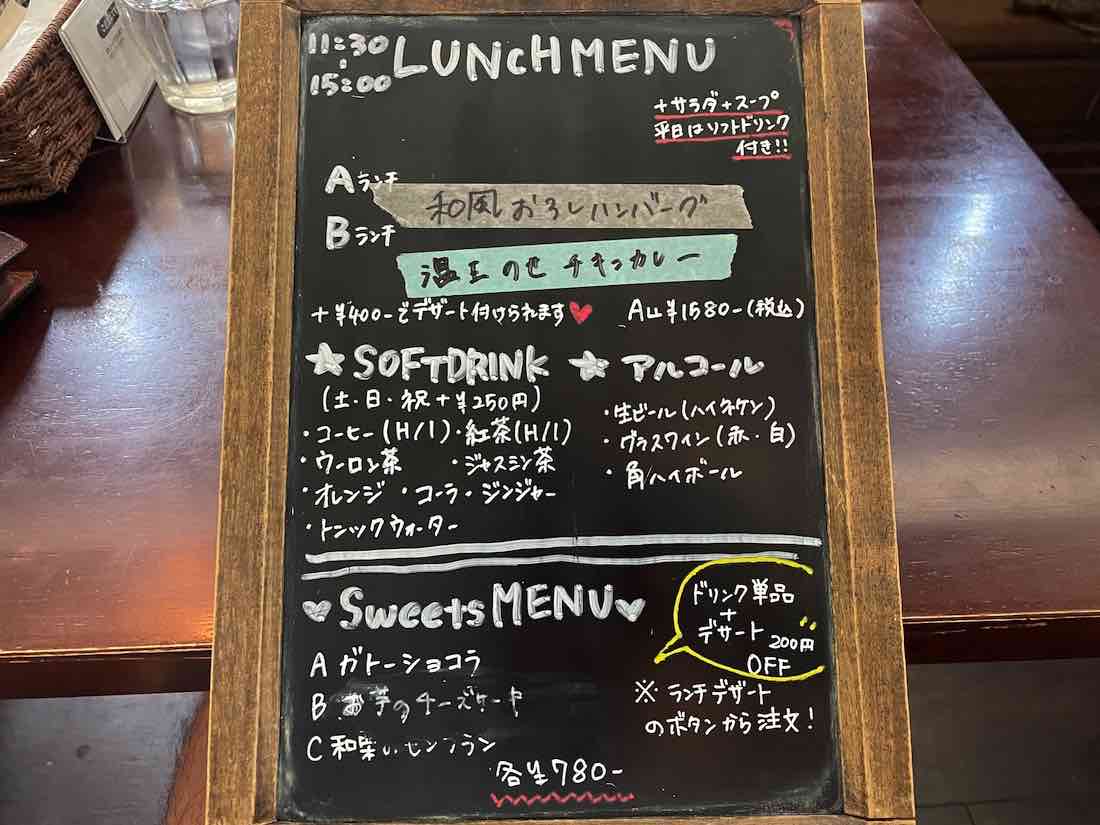 11:30
15:00
LUNCHMENU
+サラダ+スープ
平日はソフトドリンク
付き!!
Aランチ
和風おろしハンバーグ
Bランチ
温玉のせチキンカレー
+¥400-でデザート付けられます♥ A ¥1580-(税込)
★ SOFTDRINK ★ アルコール
(土・日・祝+¥250円)
・コーヒー(H/I)・紅茶(H/I)
・ウーロン茶 ・ジャスミン茶
・オレンジ ・コーラ・ジンジャー
・トニックウォーター
・生ビール(ハイネケン)
・グラスワイン(赤・白)
・角ハイボール
♥ Sweets MENU ♥
ドリンク単品
+
デザート 200円
OFF
A ガトーショコラ
B お芋のチーズケーキ
C 和栗
各¥780-
※ ランチデザート
のボタンから注文!